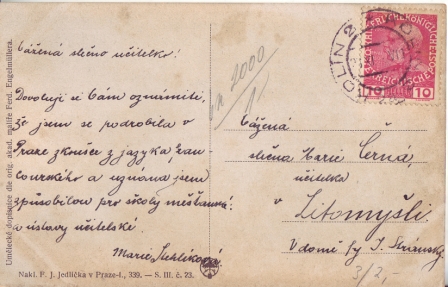 Umělecké dopisnice dle orig. akad. malíře Ferd. Engelmüllera.
Vážená slečno učitelko!
Dovoluji si Vám oznámiti,
že jsem se podrobila v
Praze zkoušce z jazyka fran-
couzského a uznána jsem
způsobilou pro školy měšťanské
a ústavy učitelské.
Marie
Nakl. F. J. Jedlička v Praze-I., 339. — S. III. č. 23.
1000
1
KOLÍN 2
10 10
Vážená
slečna Marie Černá,
učitelka
v
Litomyšli
V domě p. J.
3/2,-